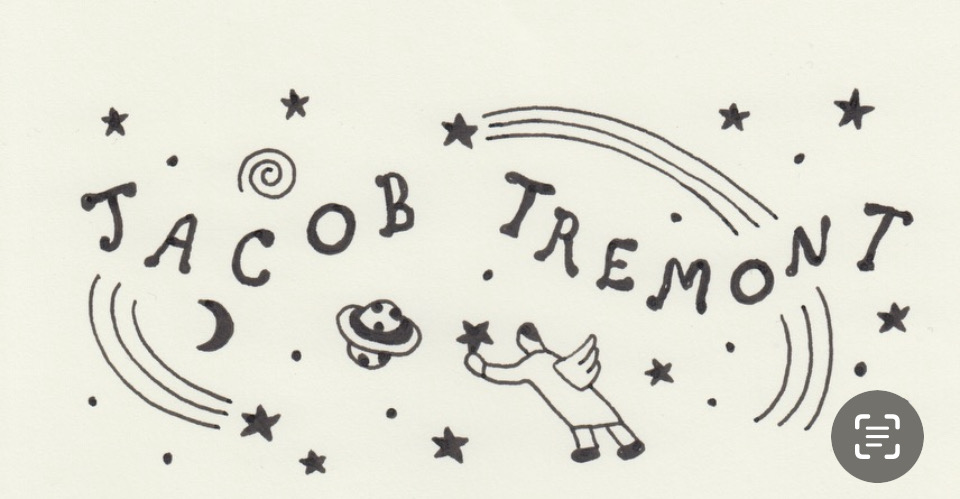 JACOB TREMONT